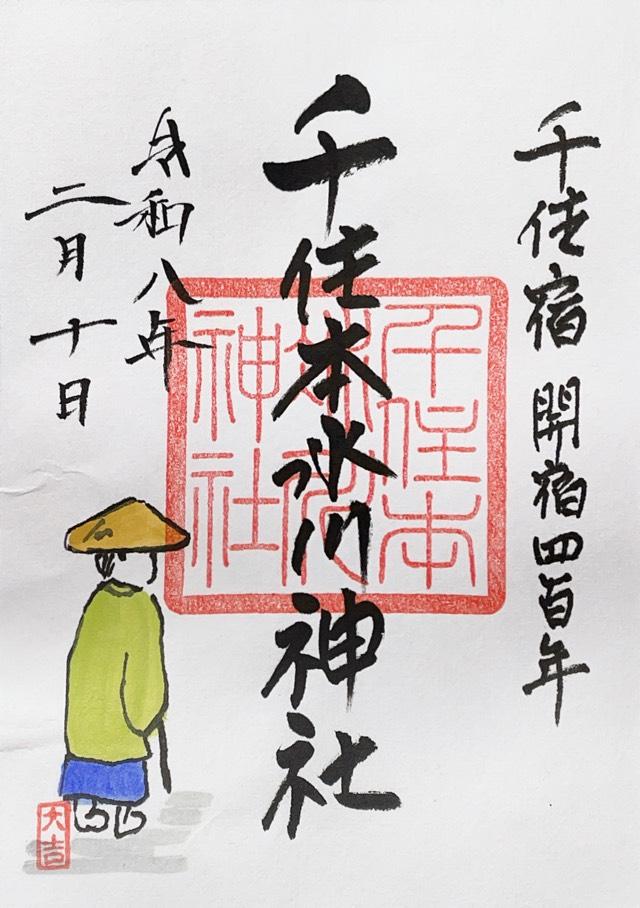 千住宿 開宿四百年
千住本氷川神社
令和八年
二月十日
千住本
氷川
神社
大吉